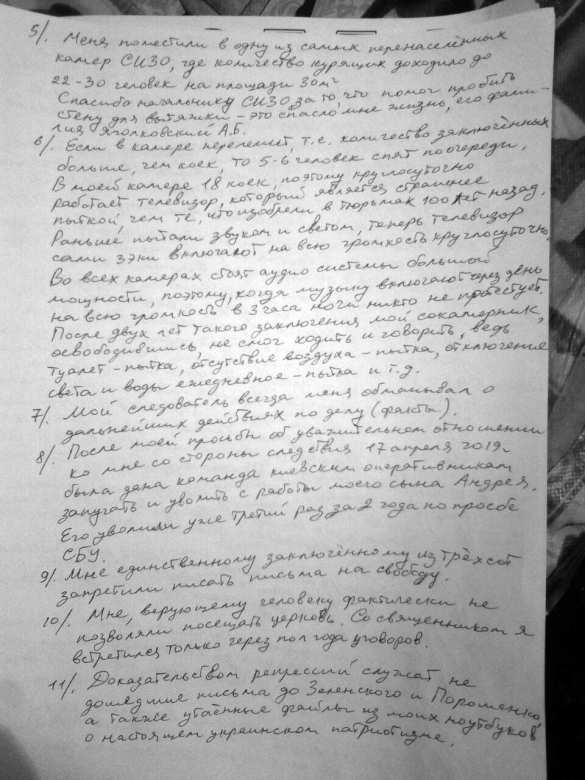 5/. Меня поместили в одну из самых перенаселённых
камер СИЗО, где количество курящих доходило до
22-30 человек на площади 30м²
Спасибо начальнику СИЗО за то, что помог пробить
стену для вытяжки - это спасло мне жизнь, его фами-
лия Яголковский А.Б.
6/. Если в камере перелимит, т.е. количество заключённых
больше, чем коек, то 5-6 человек спят поочереди,
В моей камере 18 коек, поэтому круглосуточно
работает телевизор, который является страшнее
пыткой, чем те, что изобрели в тюрьмах 100 лет назад.
Раньше пытали звуком и светом, теперь телевизор
сами зэки включают на всю громкость круглосуточно.
Во всех камерах стоят аудио системы большой
мощности, поэтому, когда музыку включают через день
на всю громкость в 3 часа ночи никто не протестует.
После двух лет такого заключения мой сокамерник,
освободившись, не смог ходить и говорить, ведь
туалет - пытка, отсутствие воздуха - пытка, отключение
света и воды ежедневное - пытка и т.д.
7/. Мой следователь всегда меня обманывал о
дальнейших действиях по делу (факты).
8/. После моей просьбы об уважительном отношении
ко мне со стороны следствия 17 апреля 2019г.
была дана команда киевским оперативникам
запугать и уволить с работы моего сына Андрея.
Его уволили уже третий раз за 2 года по просьбе
СБУ.
9/. Мне единственному заключённому из трёхсот
запретили писать письма на свободу.
10/. Мне, верующему человеку фактически не
позволяли посещать церковь. Со священником я
встретился только через пол года уговоров.
11/. Доказательством репрессий служат не
дошедшие письма до Зеленского и Порошенко,
а также утаённые файлы из моих ноутбуков
о настоящем украинском патриотизме.